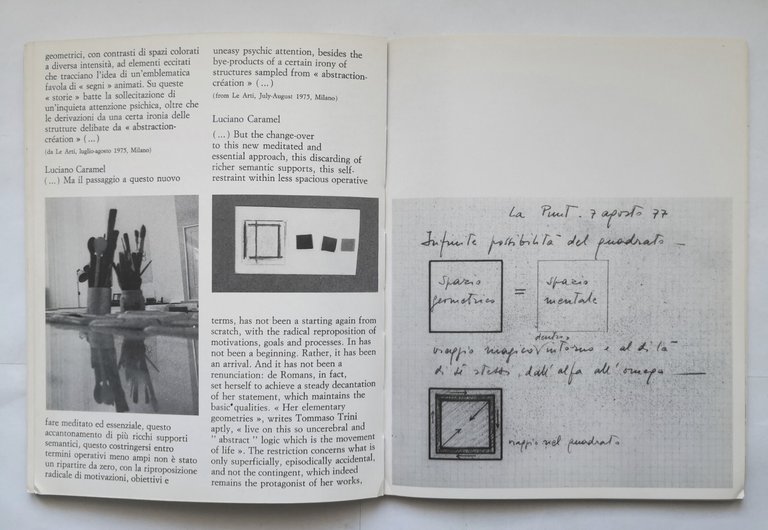 geometrici, con contrasti di spazi colorati
a diversa intensità, ad elementi eccitati
che tracciano l'idea di un'emblematica
favola di « segni » animati. Su queste
« storie » batte la sollecitazione di
un'inquieta attenzione psichica, oltre che
le derivazioni da una certa ironia delle
strutture delibate da « abstraction-
création » (...)
(da Le Arti, luglio-agosto 1975, Milano)
Luciano Caramel
(...) Ma il passaggio a questo nuovo
fare meditato ed essenziale, questo
accantonamento di più ricchi supporti
semantici, questo costringersi entro
termini operativi meno ampi non è stato
un ripartire da zero, con la riproposizione
radicale di motivazioni, obiettivi e
uneasy psychic attention, besides the
bye-products of a certain irony of
structures sampled from « abstraction-
création » (...)
(from Le Arti, July-August 1975, Milano)
Luciano Caramel
(...) But the change-over
to this new meditated and
essential approach, this discarding of
richer semantic supports, this self-
restraint within less spacious operative
terms, has not been a starting again from
scratch, with the radical reproposition of
motivations, goals and processes. In has
not been a beginning. Rather, it has been
an arrival. And it has not been a
renunciation: de Romans, in fact,
set herself to achieve a steady decantation
of her statement, which maintains the
basic qualities. « Her elementary
geometries », writes Tommaso Trini
aptly, « live on this so uncerebral and
" abstract " logic which is the movement
of life ». The restriction concerns what is
only superficially, episodically accidental,
and not the contingent, which indeed
remains the protagonist of her works,
La Punt. 7 agosto 77
Infinite possibilità del quadrato —
spazio
geometrico
=
spazio
mentale
dentro,
viaggio magico intorno e al di là
di sè stessi, dall'alfa all'omega —
viaggio nel quadrato